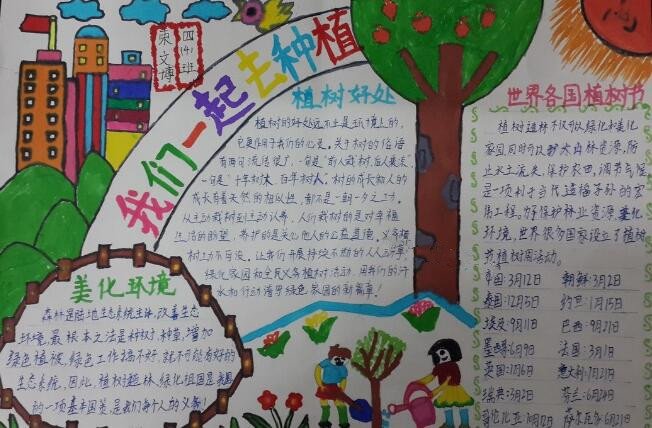 四(4)班
宋文博
我们一起去种植
植树好处
植树的好处远不止是环境上的，
它更作用于我们的心灵。关于树的俗语
有两句流传很广，一句是"前人栽树，后人乘凉"，
一句是"十年树木，百年树人"。树的成长和人的
成长有着天然的相似性，都不是一朝一夕之功。
从主动栽树到主动认养，人们栽树的是对幸福
生活的盼望，养护的是关心他人的公益道德。义务植
树上功不可没。让我们开持续不断的人人动手，
绿化家园和全民义务植树活动，用我们的汗
水和行动谱写绿色家园的新篇章！
美化环境
森林是陆地生态系统主体，改善生态
环境，最根本之法是种树、种草，增加
绿色植被，绿色工作搞不好，就不可能有好的
生态系统，因此，植树造林，绿化祖国是我国
的一项基本国策，是我们每个人的义务！
世界各国植树节
植树造林不仅可以绿化和美化
家园，同时可以扩大山林资源，防
止水土流失，保护农田，调节气候，
是一项利于当代、造福子孙的宏
伟工程，为了保护林业资源，美化
环境，世界很多国家设立了植树
节、植树周活动。
中国：3月12日 朝鲜：3月2日
泰国：12月5日 约旦：1月15日
埃及：9月11日 巴西：9月21日
墨西哥：6月9日 法国：3月1日
英国：1月6日 意大利：11月21日
瑞典：3月2日 芬兰：6月24日
哥伦比亚：10月12日 萨尔瓦多：6月21日